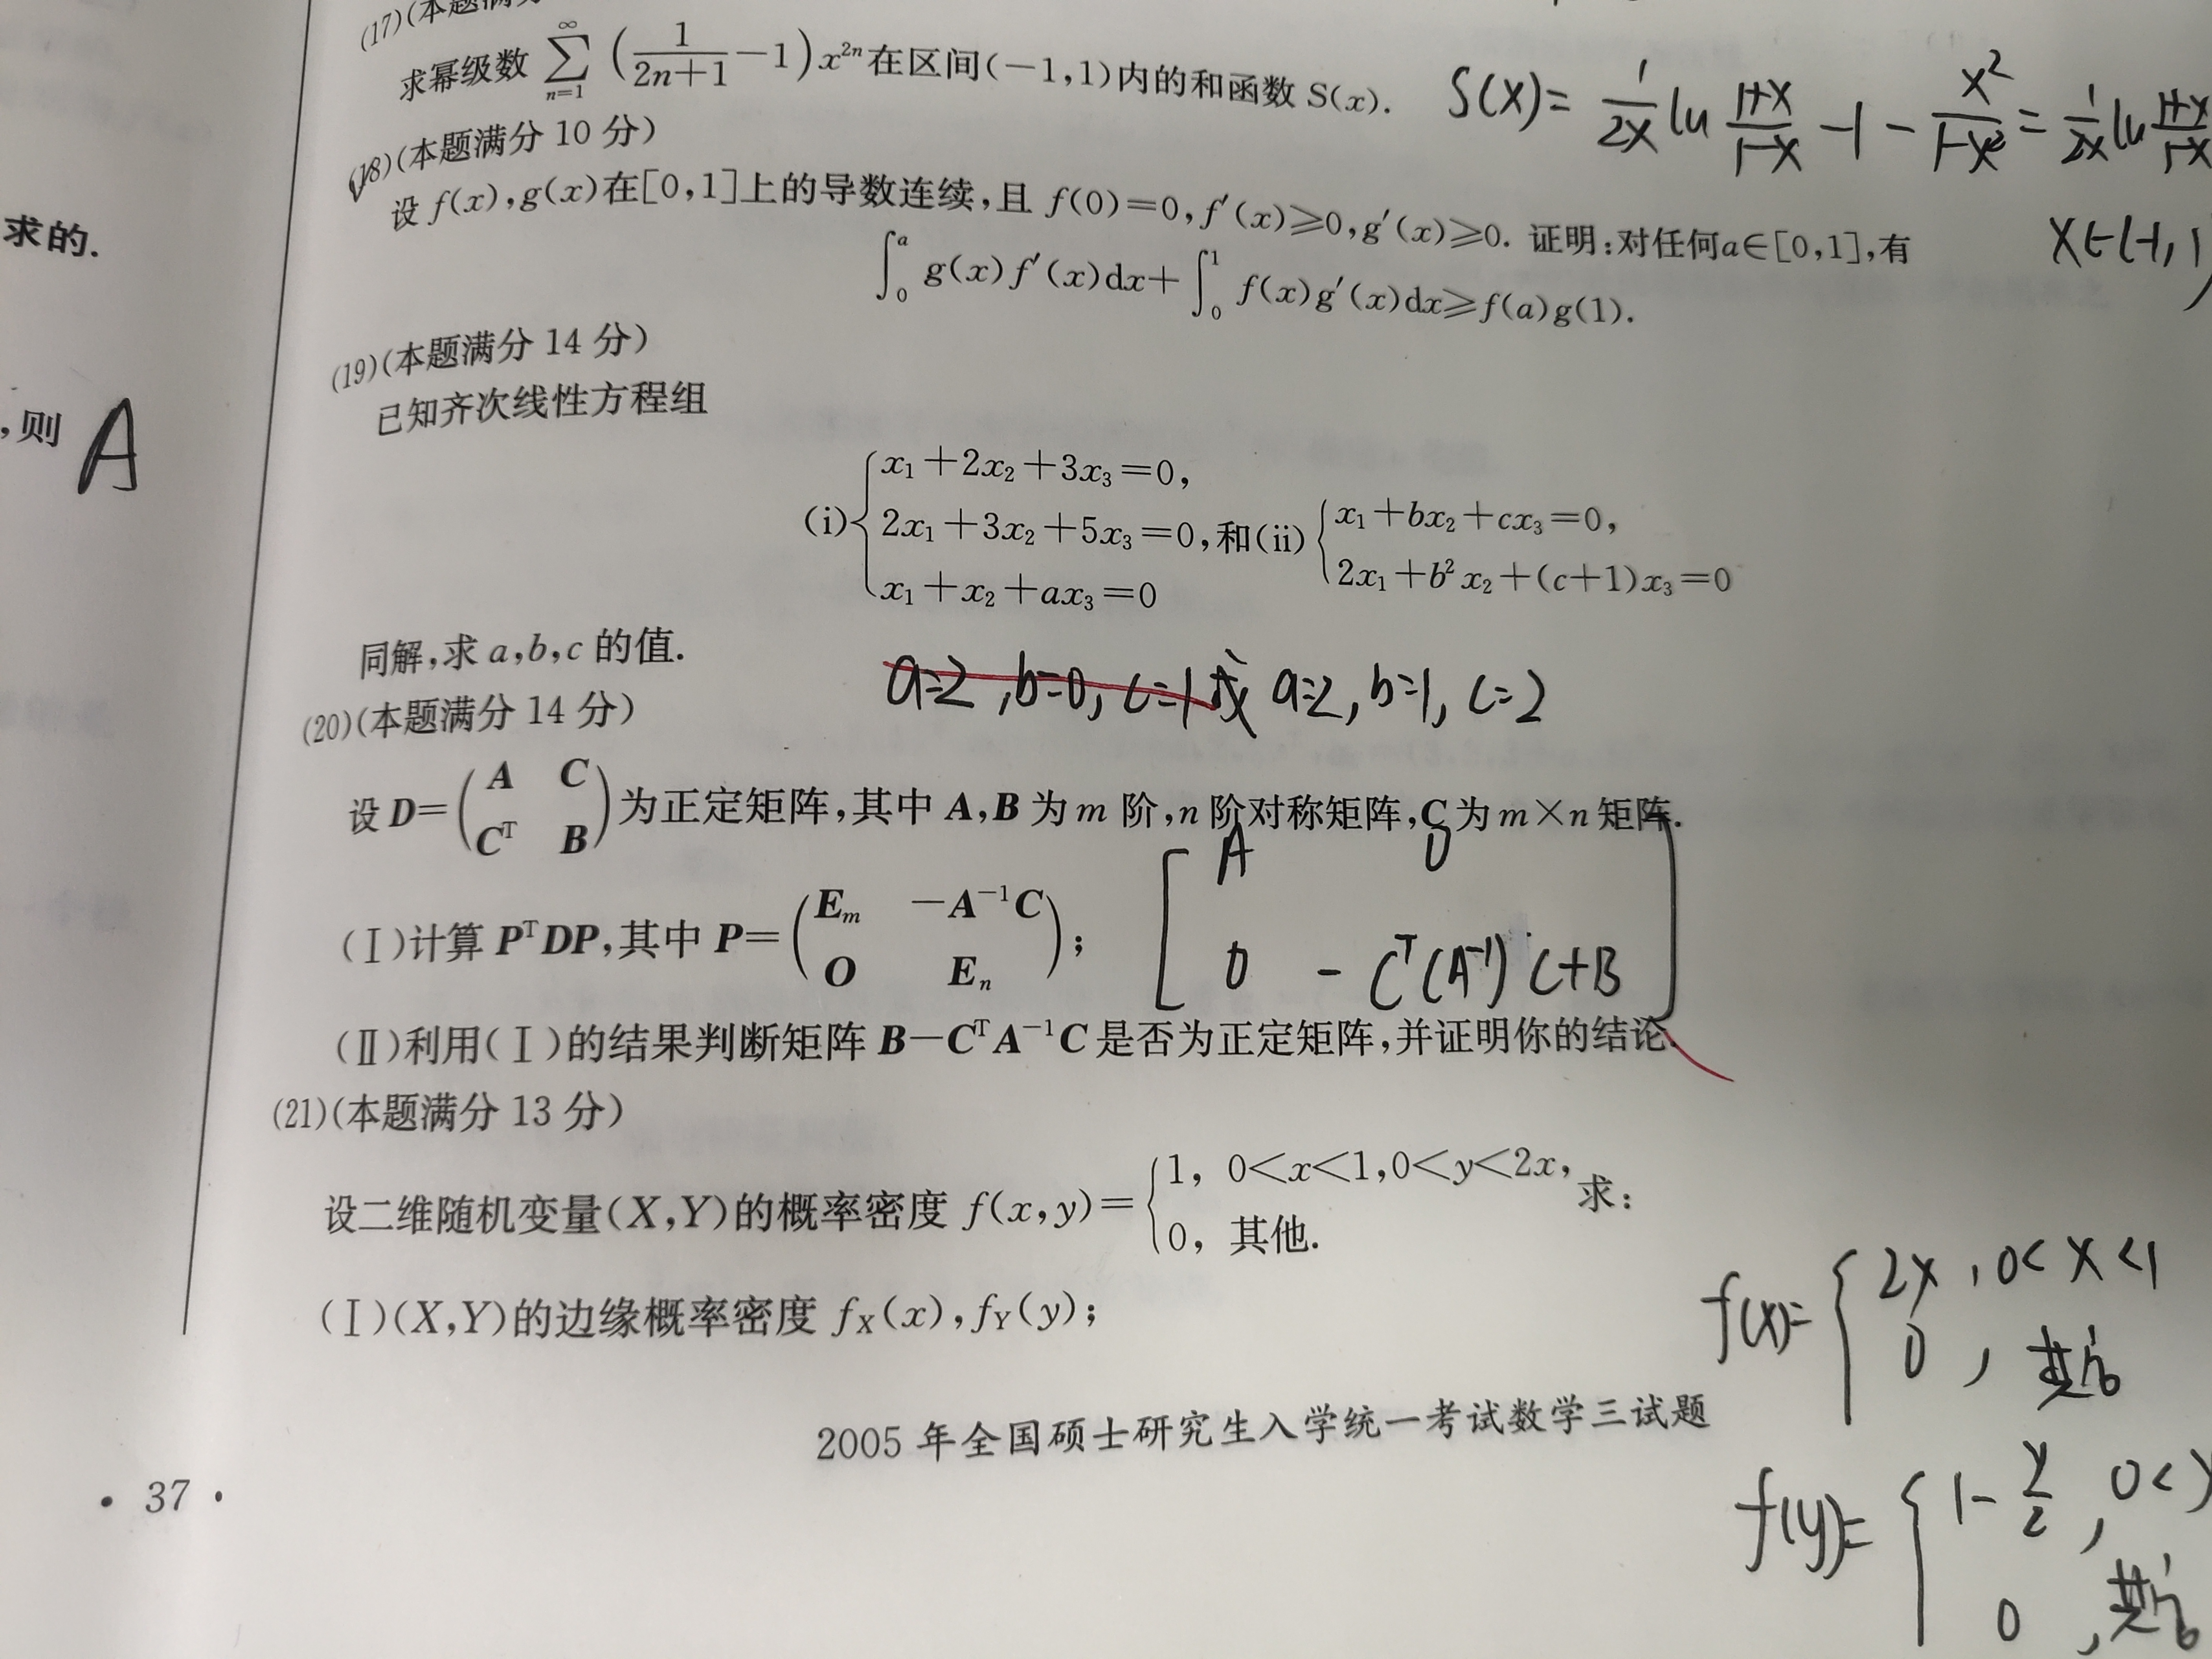 (17)(本题满分
求幂级数 \sum_{n=1}^{∞} (\frac{1}{2n+1}-1) x^{2n} 在区间(-1,1)内的和函数 S(x).
S(x)= \frac{1}{2x} ln \frac{1+x}{1-x} -1 - \frac{x^2}{1-x^2} = \frac{1}{2x} ln \frac{1+x}{1-x}
x∈(-1,1)
(18)(本题满分 10 分)
设 f(x),g(x)在[0,1]上的导数连续,且 f(0)=0,f′(x)≥0,g′(x)≥0. 证明:对任何a∈[0,1],有
\int_0^a g(x)f′(x)dx+\int_0^1 f(x)g′(x)dx≥f(a)g(1).
求的.
(19)(本题满分 14 分)
已知齐次线性方程组
,则 A
(i) { x₁+2x₂+3x₃=0,
2x₁+3x₂+5x₃=0,
x₁+x₂+ax₃=0
和(ii) { x₁+bx₂+cx₃=0,
2x₁+b²x₂+(c+1)x₃=0
同解,求 a,b,c 的值.
a=2 ,b=0, c=1或 a=2, b=1, c=2
(20)(本题满分 14 分)
设 D=\begin{pmatrix} A & C \\ C^T & B \end{pmatrix} 为正定矩阵,其中 A,B 为 m 阶,n 阶对称矩阵,C 为 m×n 矩阵.
(Ⅰ)计算 P^T DP,其中 P=\begin{pmatrix} E_m & -A^{-1}C \\ O & E_n \end{pmatrix};
[ A 0
0 -C^T(A^{-1})C+B ]
(Ⅱ)利用(Ⅰ)的结果判断矩阵 B-C^T A^{-1}C 是否为正定矩阵,并证明你的结论.
(21)(本题满分 13 分)
设二维随机变量(X,Y)的概率密度 f(x,y)= { 1, 0<x<1,0<y<2x,
0, 其他.
求:
(Ⅰ)(X,Y)的边缘概率密度 f_X(x),f_Y(y);
f(x)= { 2x , 0<x<1
0 , 其他
f(y)= { 1-\frac{y}{2} , 0<y
0 , 其他
2005 年全国硕士研究生入学统一考试数学三试题
• 37 •